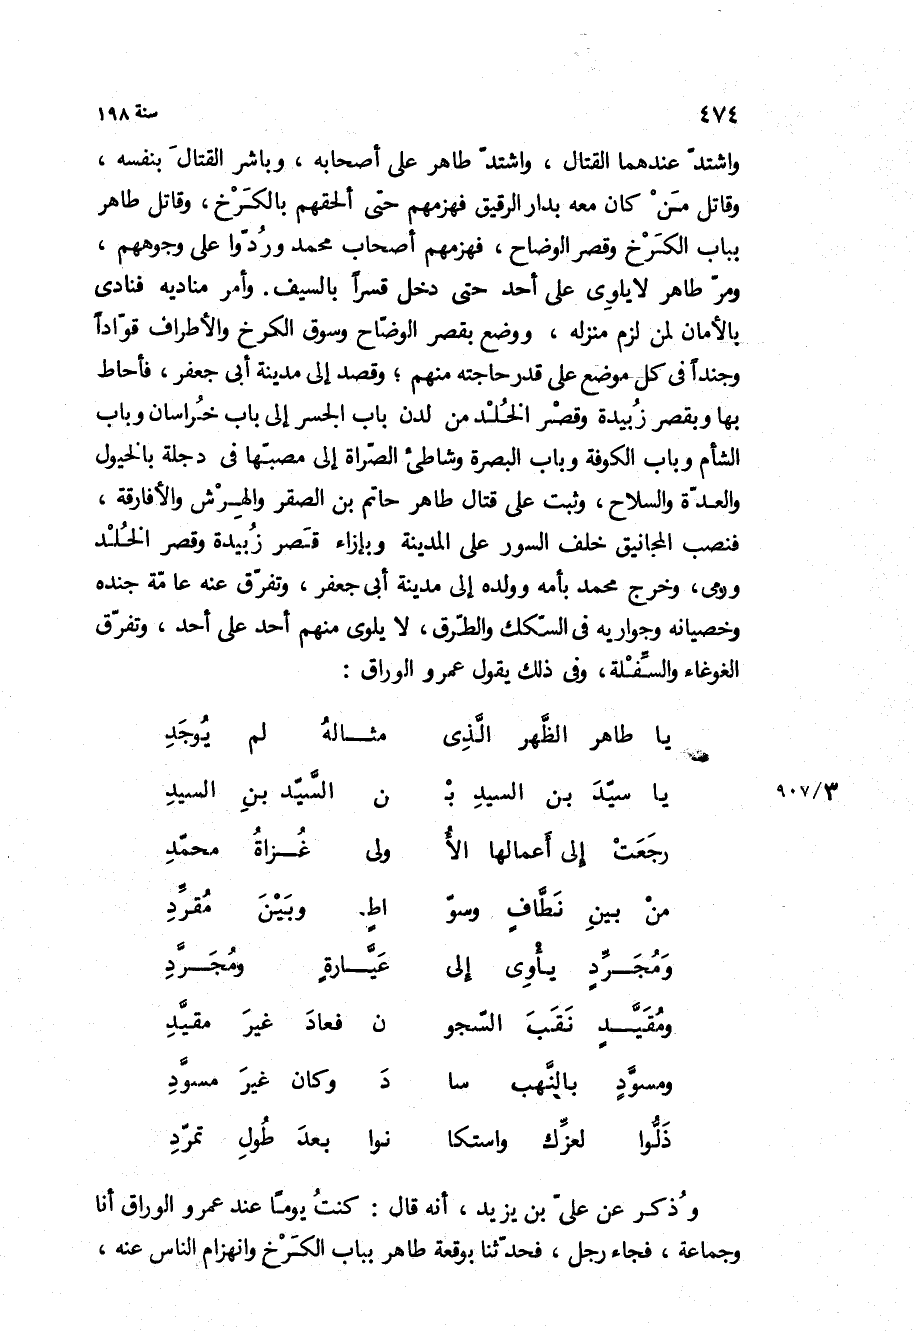 ٤٧٤ سنة ١٩٨
واشتدّ عندهما القتال ، واشتدّ طاهر على أصحابه ، وباشر القتالَ بنفسه ،
وقاتل مَنْ كان معه بدار الرقيق فهزمهم حتى ألحقهم بالكَرْخ ، وقاتل طاهر
بباب الكَرْخ وقصر الوضاح ، فهزمهم أصحاب محمد ورُدّوا على وجوههم ،
ومرّ طاهر لايلوِى على أحد حتى دخل قسراً بالسيف. وأمر مناديه فنادى
بالأمان لمن لزم منزله ، ووضع بقصر الوضّاح وسوق الكرخ والأطراف قوّاداً
وجنداً فى كل موضع على قدر حاجته منهم ؛ وقصد إلى مدينة أبى جعفر ، فأحاط
بها وبقصر زُبيدة وقصْر الخُلْد من لدن باب الجسر إلى باب خُراسان وباب
الشأم وباب الكوفة وباب البصرة وشاطئ الصّراة إلى مصبّها فى دجلة بالخيول
والعدّة والسلاح ، وثبت على قتال طاهر حاتم بن الصقر والهِرْش والأفارقة ،
فنصب المجانيق خلف السور على المدينة وبإزاء قَصر زُبيدة وقصر الخُلْد
ورمى، وخرج محمد بأمه وولده إلى مدينة أبى جعفر ، وتفرّق عنه عامّة جنده
وخصيانه وجواريه فى السّكك والطّرق ، لا يلوى منهم أحد على أحد ، وتفرّق
الغوغاء والسِّفْلة، وفى ذلك يقول عمرو الوراق :
يا طاهر الظَّهر الَّذِى مثالهُ لم يُوجَدِ
يا سيّدَ بن السيدِ بْ ن السَّيّد بنِ السيدِ ٩٠٧/٣
رجَعَتْ إلى أَعمالها الأُ ولى غُزاةُ محمّدِ
منْ بينِ نَطَّافٍ وسوّ اطٍ وبَيْنَ مُقرَّدِ
وَمُجَرِّدٍ يأْوِى إلى عَيَّارةٍ ومُجَرَّدِ
ومُقَيَّدٍ نَقَبَ السّجو ن فعادَ غيرَ مقيَّدِ
ومسوَّدٍ بالنَّهب سا دَ وكان غيرَ مسوَّدِ
ذَلُّوا لعزِّك واستكا نوا بعدَ طُولِ تمرّدِ
وذُكر عن علىّ بن يزيد ، أنه قال : كنتُ يومًا عند عمرو الوراق أنا
وجماعة ، فجاء رجل ، فحدّثنا بوقعة طاهر بباب الكَرْخ وانهزام الناس عنه ،